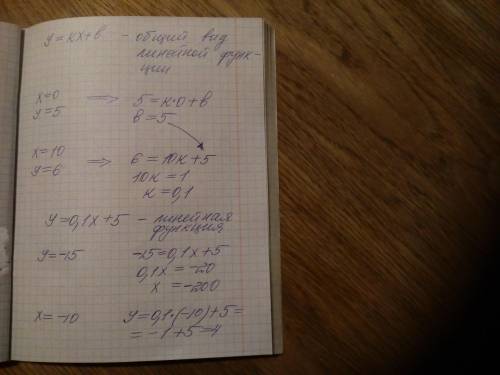 y = kx + b – общий вид
линейной функ-
ции
x=0
y=5 ⟹ 5 = k·0 + b
b = 5
x=10
y=6 ⟹ 6 = 10k + 5
10k = 1
k = 0,1
y = 0,1x + 5 – линейная
функция
y = -15 -15 = 0,1x + 5
0,1x = -20
x = -200
x = -10 y = 0,1·(-10) + 5 =
= -1 + 5 = 4